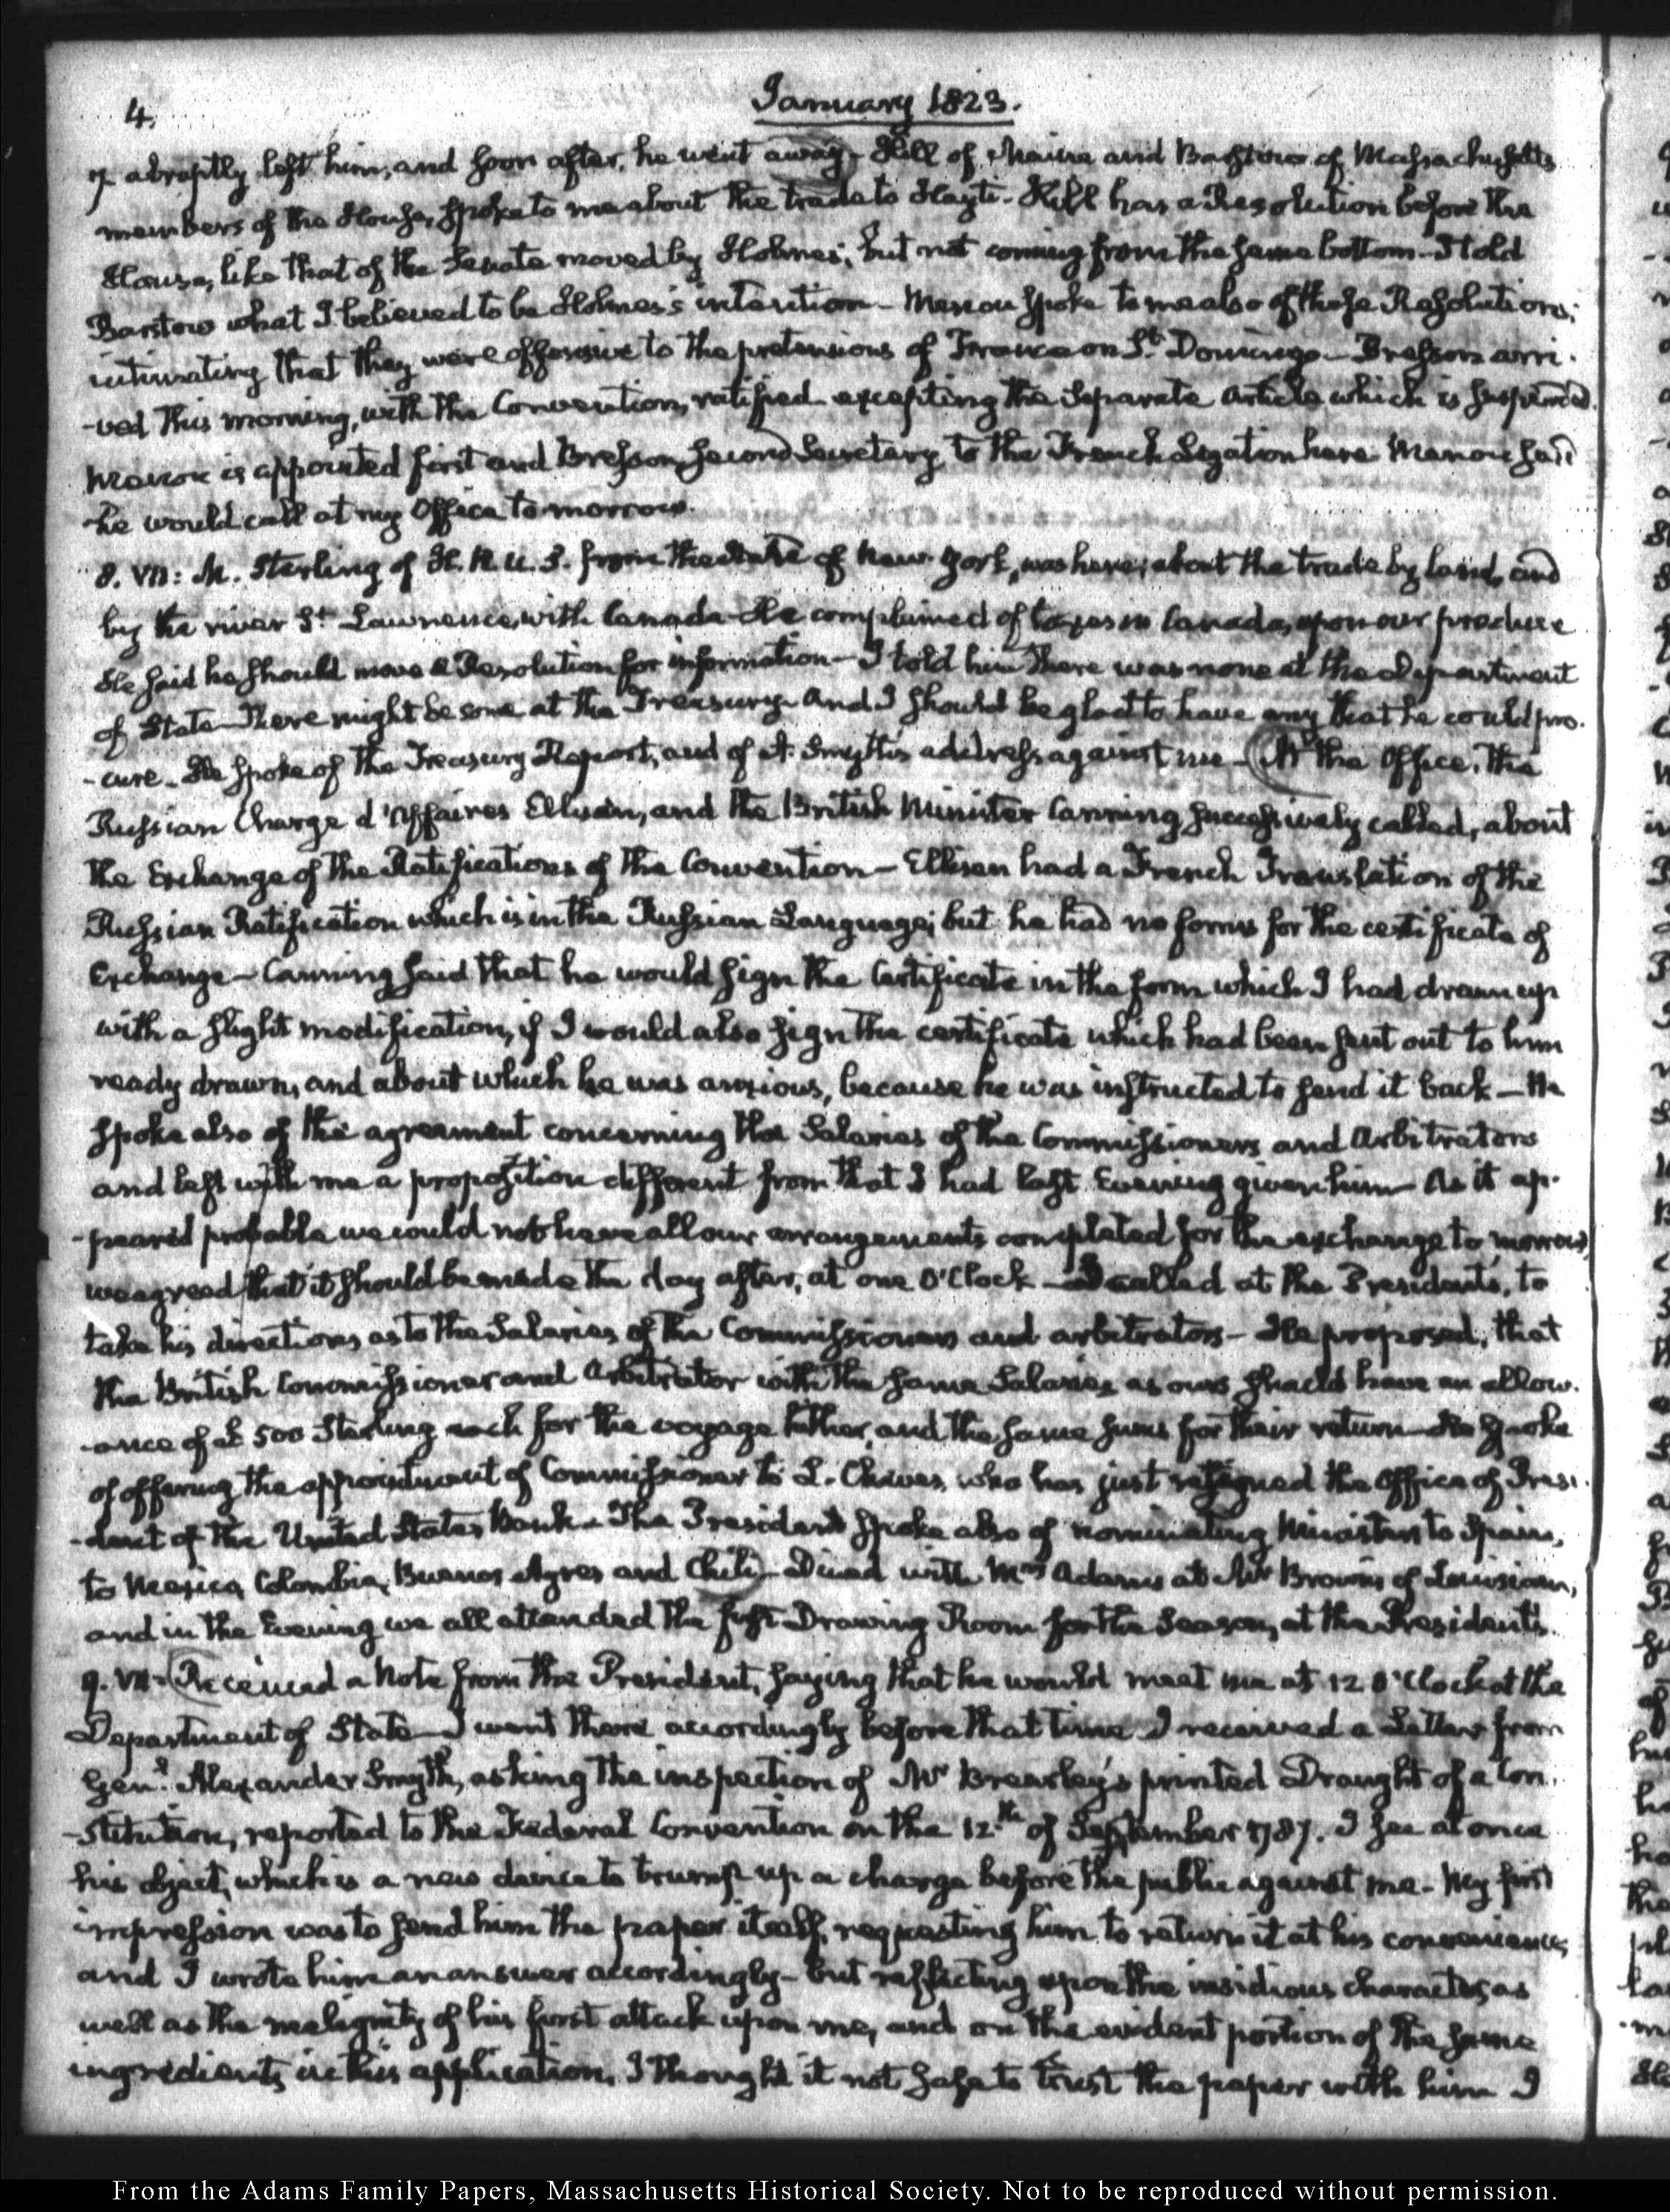 4.
January 1823.
I abruptly left him, and soon after, he went away. Hill of Maine and Barstow of Massachusetts
members of the House, spoke to me about the trade to Hayti. Hill has a Resolution before the
House, like that of the Senate moved by Holmes; but not coming from the same bottom. I told
Barstow what I believed to be Holmes's intention. Menou spoke to me also of these Resolutions;
intimating that they were offensive to the pretensions of France on St. Domingo. Bresson arri-
-ved this morning, with the Convention, ratified excepting the Separate Article which is suspended.
Menou is appointed first and Bresson second Secretary to the French Legation here. Menou said
he would call at my Office to-morrow.
8. VII: M. Sterling of H. R. U. S. from the State of New-York, was here; about the trade by land, and
by the river St. Lawrence, with Canada. He complained of taxes in Canada, upon our produce
He said he should move a Resolution for information — I told him there was none at the Department
of State. There might be some at the Treasury. And I should be glad to have any that he could pro-
-cure. He spoke of the Treasury Report, and of A. Smyth's address against me — At the Office, the
Russian Chargé d'Affaires Ellisen, and the British Minister Canning successively called, about
the Exchange of the Ratifications of the Convention — Ellisen had a French Translation of the
Russian Ratification which is in the Russian Language; but he had no forms for the certificate of
Exchange — Canning said that he would sign the Certificate in the form which I had drawn up
with a slight modification, if I would also sign the certificate which had been sent out to him
ready drawn, and about which he was anxious, because he was instructed to send it back — He
spoke also of the agreement concerning the Salaries of the Commissioners and Arbitrators
and left with me a proposition different from that I had last Evening given him. As it ap-
-peared probable we could not have all our arrangements completed for the exchange to-morrow,
we agreed that it should be made the day after, at one O'Clock — I called at the President's, to
take his directions as to the Salaries of the Commissioners and arbitrators — He proposed, that
the British Commissioner and Arbitrator with the same Salaries as ours should have an allow-
-ance of £500 Sterling each for the voyage hither, and the same sums for their return. He spoke
of offering the appointment of Commissioner to L. Cheves, who has just resigned the Office of Presi-
-dent of the United States Bank. The President spoke also of nominating Ministers to Spain,
to Mexico, Colombia, Buenos Ayres and Chili. Dined with Mrs Adams at Mr Brown's of Louisiana,
and in the Evening we all attended the first Drawing Room for the Season, at the President's.
9. VII. Received a Note from the President, saying that he would meet me at 12 O'Clock at the
Department of State — I went there accordingly before that time. I received a Letter from
Genl. Alexander Smyth, asking the inspection of Mr Brearley's printed Draught of a Con-
-stitution, reported to the Federal Convention on the 12th of September 1787. I see at once
his object, which is a new device to trump up a charge before the public against me. My first
impression was to send him the paper itself, requesting him to return it at his convenience,
and I wrote him an answer accordingly — but reflecting upon the insidious character, as
well as the malignity of his first attack upon me, and on the evident portion of the same
ingredients in this application, I thought it not safe to trust the paper with him I
From the Adams Family Papers, Massachusetts Historical Society. Not to be reproduced without permission.